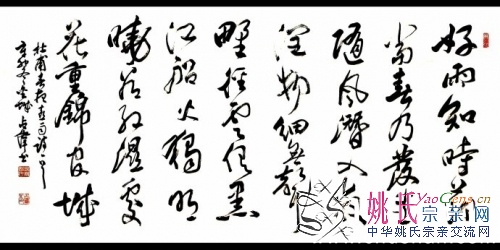 好雨知時節
當春乃發生
隨風潛入夜
潤物細無聲
野徑雲俱黑
江船火獨明
曉看紅濕處
花重錦官城
杜甫春夜喜雨詩
辛卯
姚氏宗亲网
中华姚氏宗亲交流网